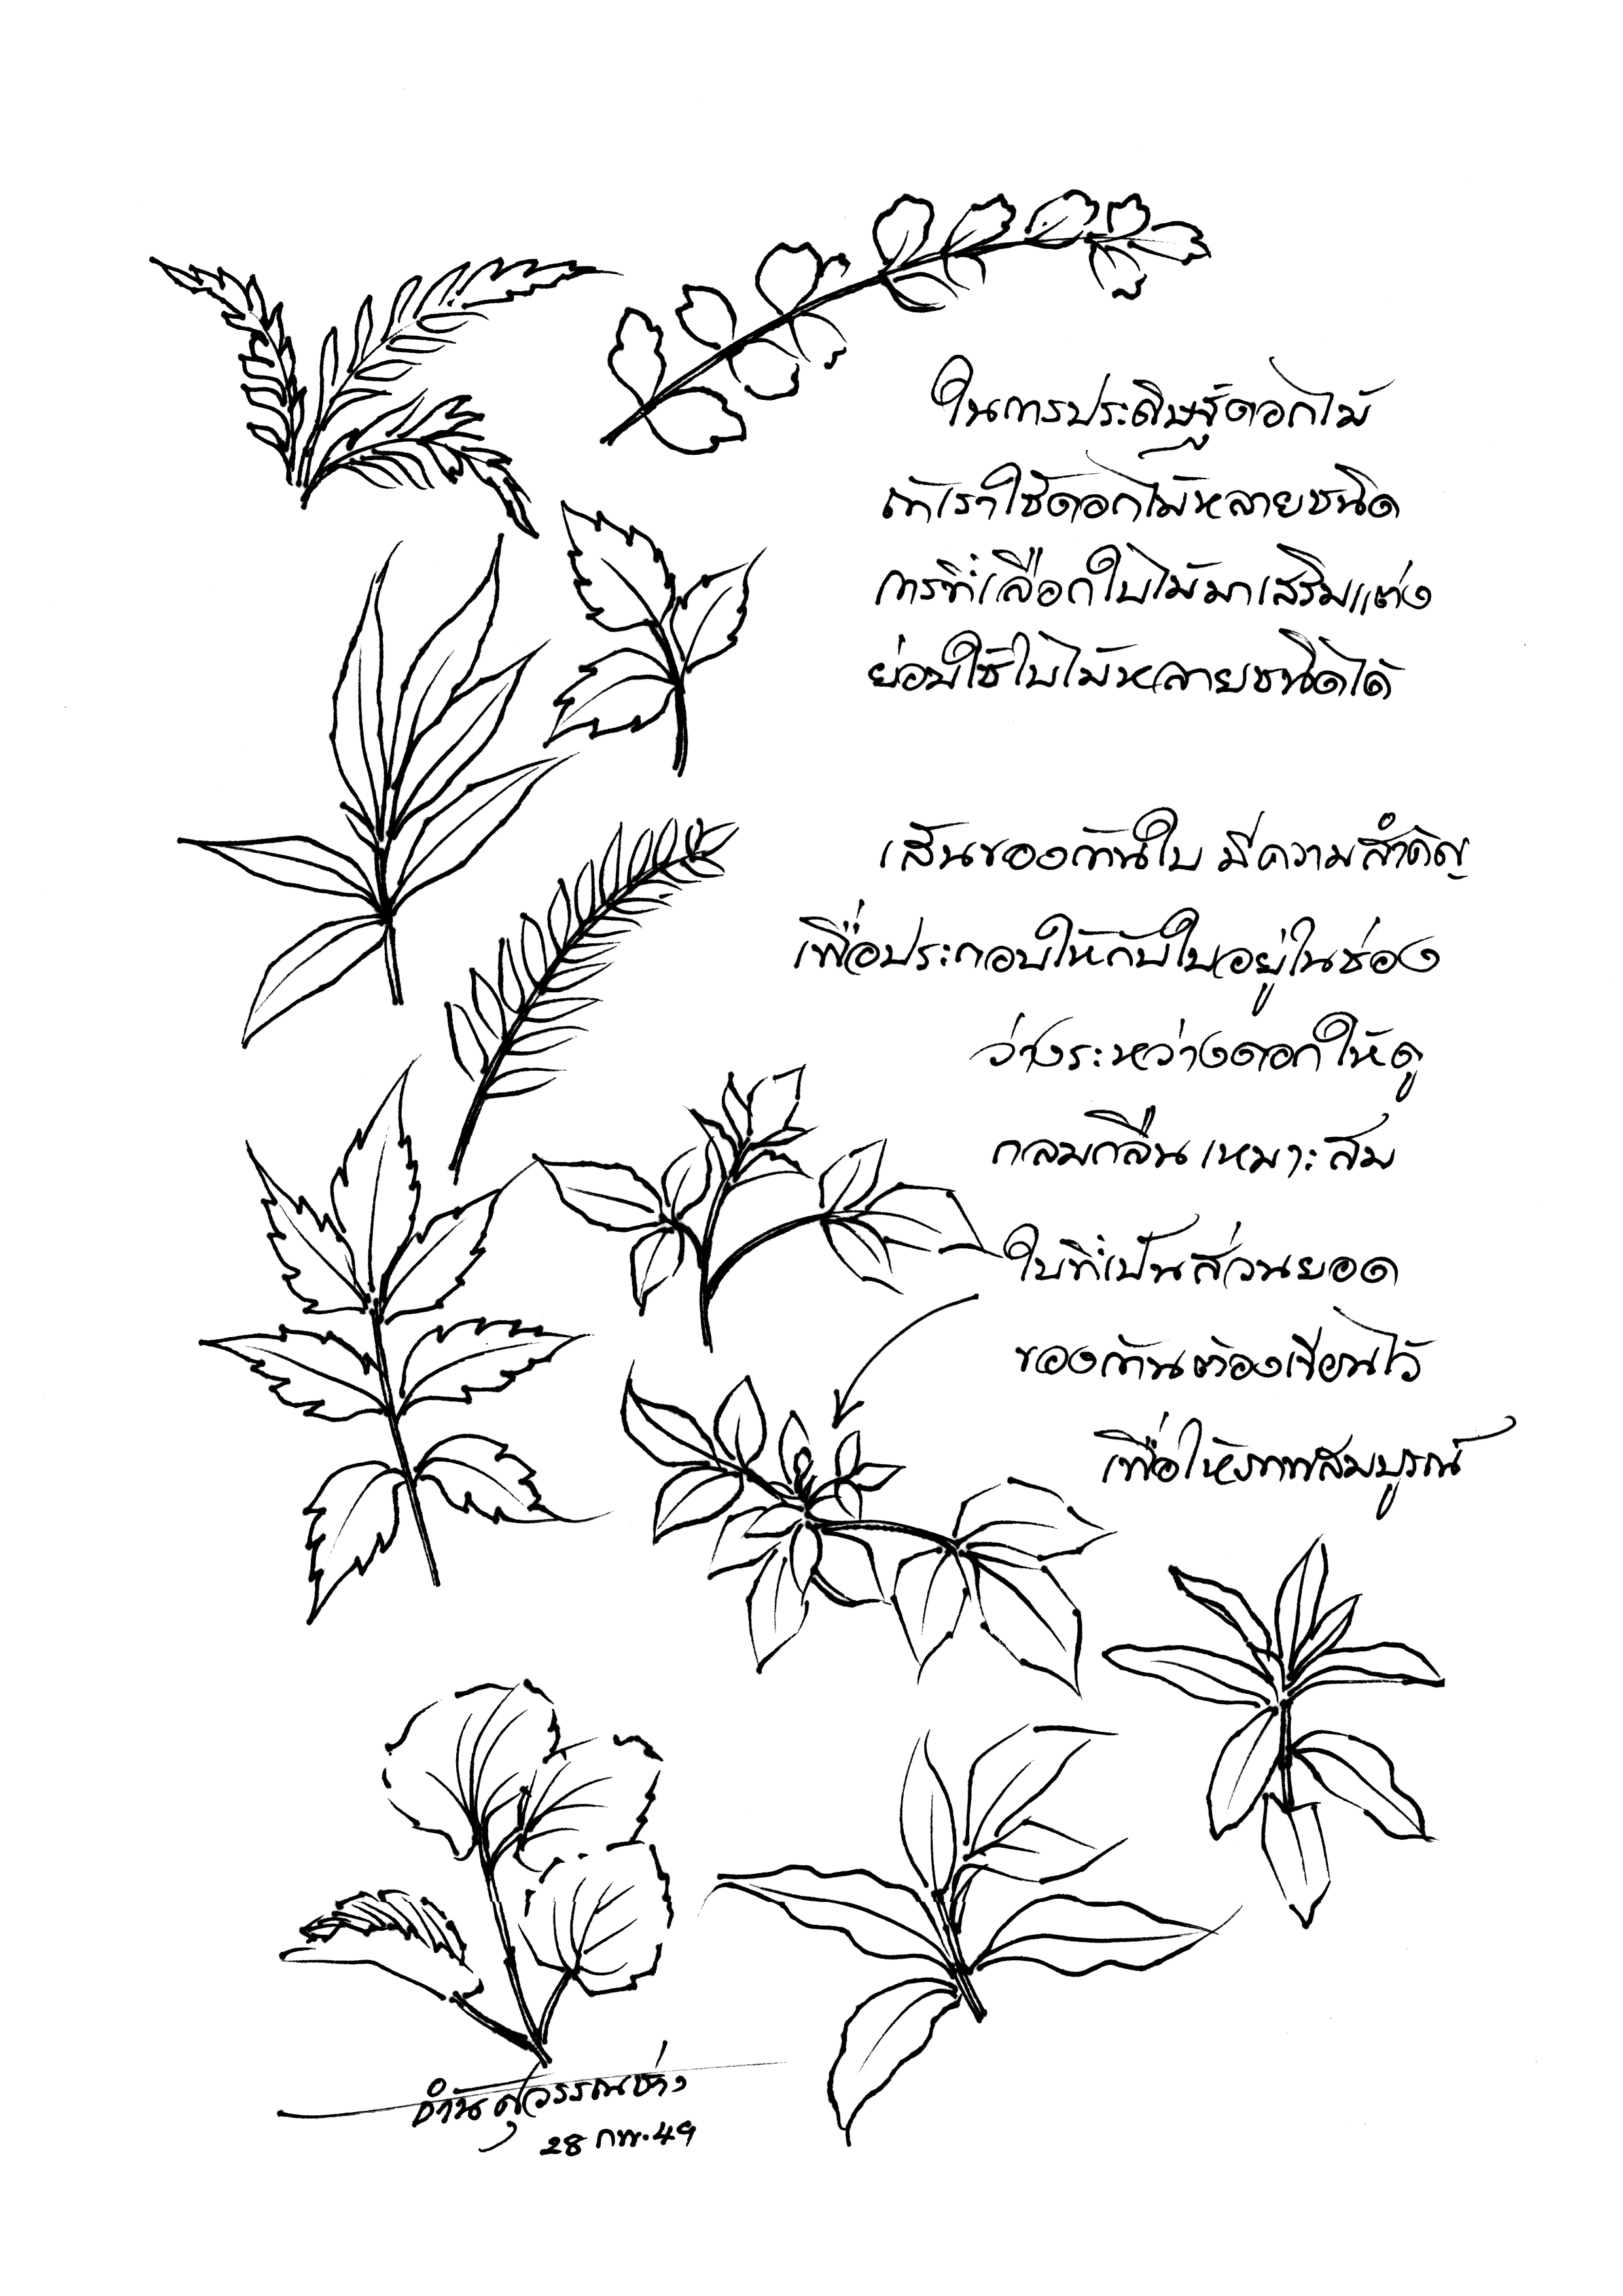 ในการประดิษฐ์ดอกไม้
ถ้าเราใช้ดอกไม้หลายชนิด
การที่เลือกใบไม้มาเสริมแต่ง
ย่อมใช้ใบไม้หลายชนิดได้
เส้นของก้านใบ มีความสำคัญ
เพื่อประกอบให้กับใบอยู่ในช่อง
ว่างระหว่างดอกให้ดู
กลมกลืนเหมาะสม
ใบที่เป็นส่วนยอด
ของก้านต้องเขียนไว้
เพื่อให้ภาพสมบูรณ์
สุวรรณช่าง
28 กพ. 49